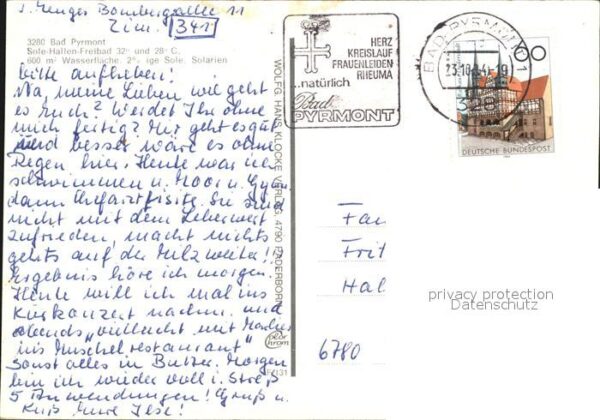 Bombergallee 11
Zim. 341
3280 Bad Pyrmont
Sole-Hallen-Freibad 32° und 28° C.
600 m² Wasserfläche. 2%ige Sole. Solarien
bitte aufheben!
Na, meine Lieben wie geht
es Euch? Werdet Ihr ohne
mich fertig? Mir geht es gut
und besser wäre es ohne
Regen hier. Heute war ich
schwimmen u. Moor u. Gym.
dann Chefarztvisite. Sie sind
nicht mit dem Leberwert
zufrieden, macht nichts
gehts auf der Milz weiter!
Ergebnis höre ich morgen.
Heute will ich mal ins
Kurkonzert nachm. und
abends "vielleicht mit
ins Muschelrestaurant"
Sonst alles in Butter. Morgen
bin ich wieder voll i. Streß
5 Anwendungen! Gruß u.
Kuß Eure Ilse!
WOLFG. HANS KLOCKE VERLAG, 4790 PADERBORN
HERZ
KREISLAUF
FRAUENLEIDEN
RHEUMA
...natürlich
Bad
PYRMONT
BAD PYRMONT 1
328
DEUTSCHE BUNDESPOST
Fam
Frit
Hal
6780
privacy protection
Datenschutz